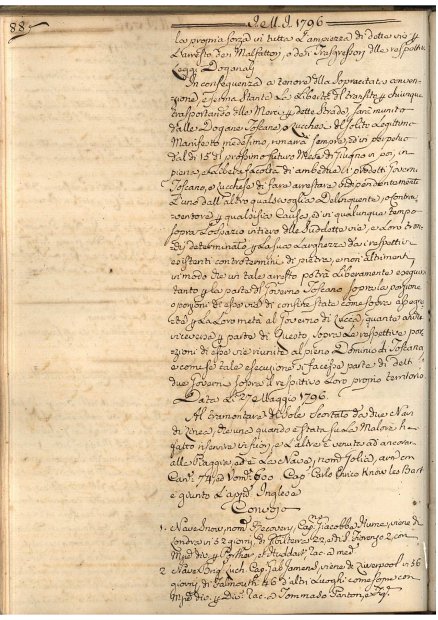 88
A. M. D. 1796
la propria forza in tutta l'ampiezza di dette vie p
L'arresto dei Malfattori, o dei Trasgressori delle respettive
Leggi Doganali
In conseguenza a tenore della Sopracitata conven-
zione, e ferma stante la Libertà di transito p chiunque
trasportando delle Merci p dette Strade, sarà munito
dalle Dogane Toscane, o Lucchesi del solito Legittimo
Manifesto medesimo, rimarrà sempre, ed in perpetuo
dal dì 15 del prossimo futuro Mese di Giugno in poi, in
piena, e Libera facoltà di ambedue i predetti Governi
Toscano, e Lucchese di fare arrestare indipendentemente
l'uno dall'altro qualsivoglia Delinquente, o Contra-
ventore p qualsisia Causa, ed in qualunque tempo
sopra lo spazio intiero delle suddette vie, e loro
determinato p la sua Larghezza dai respettivi
esistenti contro termini di pietra, e non altrimenti
in modo che un tale arresto potrà Liberamente eseguir
tanto p la parte del Governo Toscano sopra la porzione
o porzioni di esse vie di confine state come sopra assegna
te p la Loro metà al Governo di Lucca, quanto anche
viceversa p parte di Questo sopra le respettive por
zioni di esse vie riunite al pieno Dominio di Toscana
e come se tale esecuzione si facesse p parte di detti
due Governi sopra il respettivo Loro proprio territorio.
Data Li 27 Maggio 1796.
Al tramontare del Sole Scortato da due Navi
di Linea, che una quando è stata su La Maloria ha
fatto e L'altra è venuta ad ancorar
alle Piaggie, ed è La Nave, nom
Can. 74, ed Uom. 600 Cap. Carlo Enrico Knowles Bart
è giunto L'app. Inglese
Convojo
1. Nave Snow, nom. Recovery, Cap. Giacobbe Hume, viene di
Londra in 52 giorni, di Gibilterra 22, e di S. Fiorenzo 2, con
Mzie div. p
2. Nave Ing. Cap. James, viene di Liverpool in 56
giorni, di Falmouth 46 d'altri Luoghi come sopra con
Mzie div. p racc. a Tommaso Panton, e